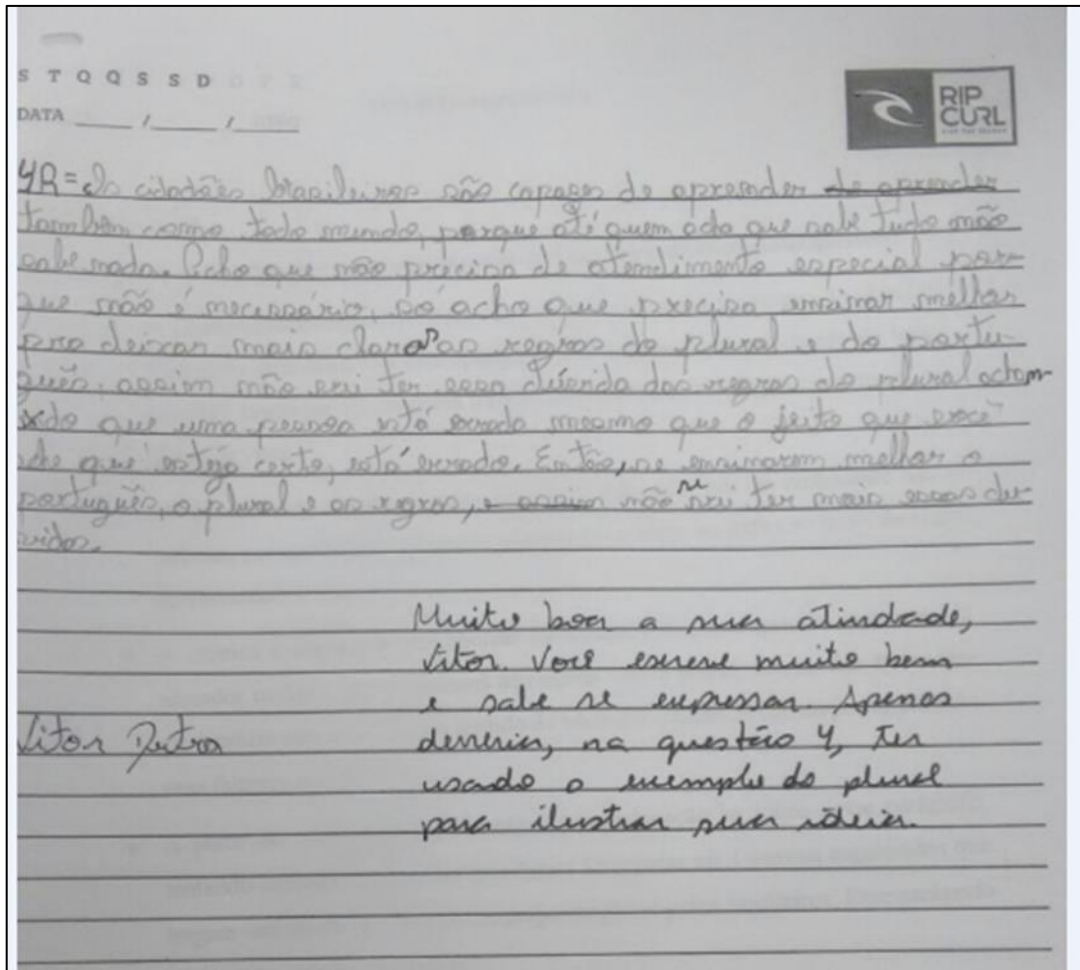 S T Q Q S S D
DATA ___/___/___
RIP CURL
4R= Os cidadões brasileiros são capazes de aprender de aprender
também como todo mundo, porque até quem acha que sabe tudo não
sabe nada. Acho que não precisa de atendimento especial por-
que não é necessário, só acho que precisa ensinar melhor
pra deixar mais claras as regras do plural e do portu-
guês, assim não vai ter essa dúvida das regras do plural acham-
do que uma pessoa está errada mesmo que o jeito que você
acha que esteja certo, está errado. Então, se ensinarem melhor o
português, o plural e as regras, e assim não vai ter mais essas dú-
vidas.
Muito boa a sua atividade,
Vitor. Você escreve muito bem
e sabe se expressar. Apenas
Vitor Dutra
deveria, na questão 4, ter
usado o exemplo do plural
para ilustrar sua ideia.